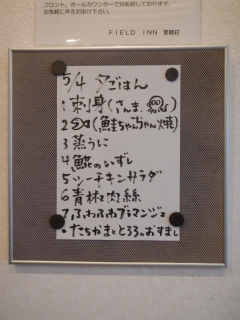 フロント、ホールカウンターで対応致しております。
お気軽に声をお掛け下さい。
FIELD INN 星観荘
5/4 夕ごはん
1 刺身(さんま、
2 (鮭ちゃんちゃん焼)
3 蒸うに
4 鯡のいずし
5 シーチキンサラダ
6 青椒肉絲
7 ふわふわブラマンジェ
・たちかまととろろのおすまし